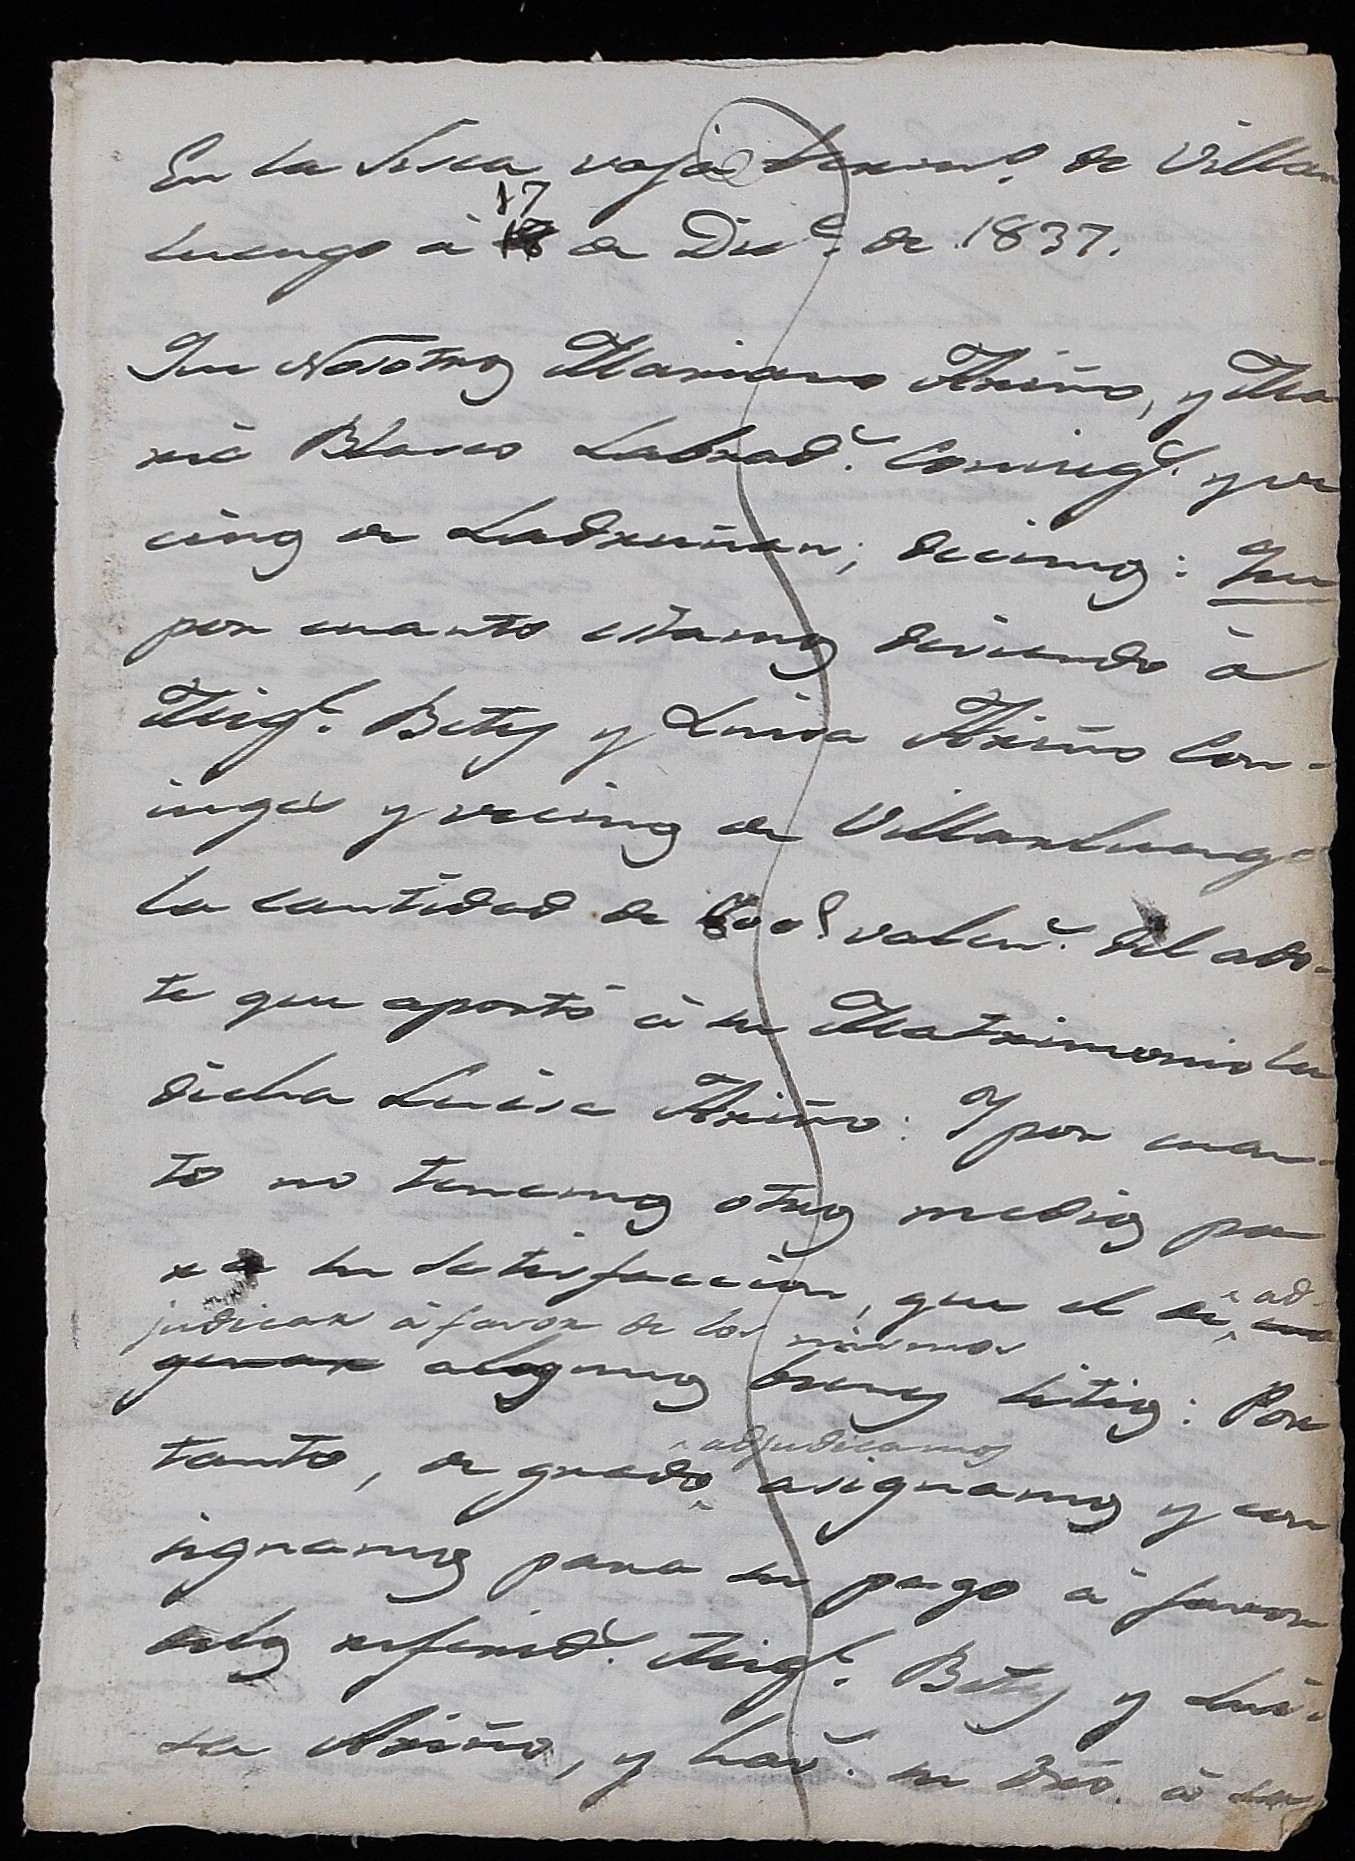 En la Vega vaja termº. de Villar
luengo à 17 de Dicᵉ. de 1837.
Que Nosotros Mariano Ariño, y Ma
ria Blasco Labradˢ. Coniugˢ. y ve
cinos de Ladruñan; decimos: Que
por cuanto estamos deviendo à
Migˡ. Betes y Luisa Ariño Con-
iuges y vecinos de Villarluengo
la cantidad de 600ˢ valenˢ. del ado-
te que aportó à su Matrimonio la
dicha Luisa Ariño: Y por cuan-
to no tenemos otros medios pa
ra su satisfaccion, que el de ad-
judicar à favor de los mismos
algunos bienes sitios: Por
tanto, de grado adjudicamos
asignamos y con
signamos para su pago à favor
delos referidˢ. Migˡ. Betes y Lui-
sa Ariño, y havˢ. su dro. à sa